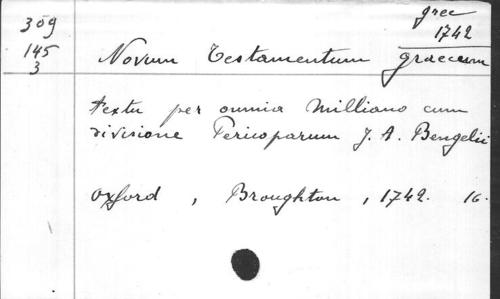 309
grec
1742
145
3
Novum Testamentum graecum
textu per omnia Milliano cum
divisione Pericoparum J. A. Bengelii
Oxford, Broughton, 1742. 16.